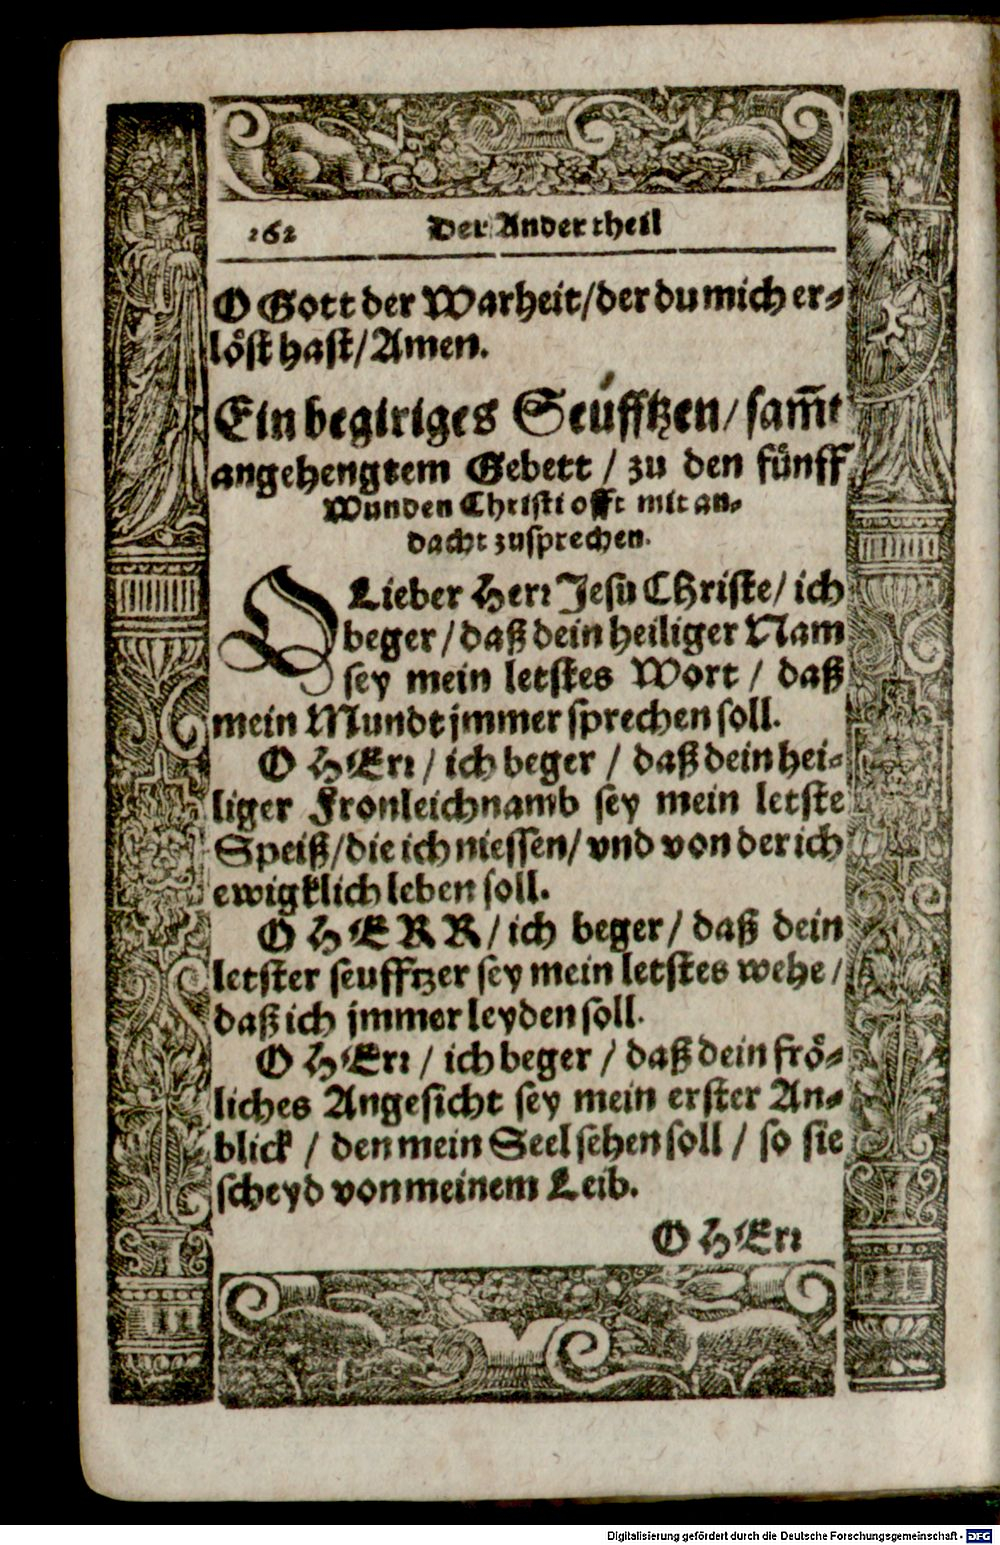 262 Der Ander theil
O Gott der Warheit/der du mich er⸗
löst hast/Amen.
Ein begiriges Seufftzen/ sam̅t
angehengtem Gebett / zu den fünff
Wunden Christi offt mit an⸗
dacht zusprechen.
O Lieber Herr Jesu CHriste/ ich
beger / daß dein heiliger Nam
sey mein letstes Wort / daß
mein Mundt jmmer sprechen soll.
O HErr / ich beger / daß dein hei⸗
liger Fronleichnamb sey mein letste
Speiß/die ich niessen/ vnd von der ich
ewigklich leben soll.
O HERR/ ich beger/ daß dein
letster seufftzer sey mein letstes wehe /
daß ich jmmer leyden soll.
O HErr / ich beger / daß dein frö⸗
liches Angesicht sey mein erster An⸗
blick / den mein Seel sehen soll / so sie
scheyd von meinem Leib.
O HErr
Digitalisierung gefördert durch die Deutsche Forschungsgemeinschaft - DFG